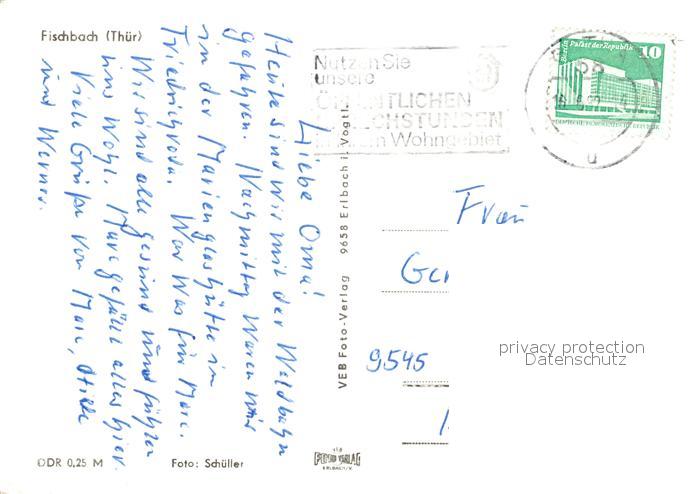 Fischbach (Thür)
Liebe Oma!
Heute sind wir mit der Waldbahn
gefahren. Nachmittag waren wir
in der Marienglashütte in
Friedrichroda. War was für Marc.
Wir sind alle gesund und fühlen
uns wohl. Marc gefällt alles hier.
Viele Grüße von Marc,
und Werner.
DDR 0,25 M
Foto: Schüller
VEB Foto-Verlag 9658 Erlbach i. Vogtl.
Nutzen Sie
unsere
ÖFFENTLICHEN
SPRECHSTUNDEN
in Ihrem Wohngebiet
Berlin Palast der Republik 10
DEUTSCHE DEMOKRATISCHE REPUBLIK
u
Frau
9545
privacy protection
Datenschutz
FOTO-VERLAG
ERLBACH/V.